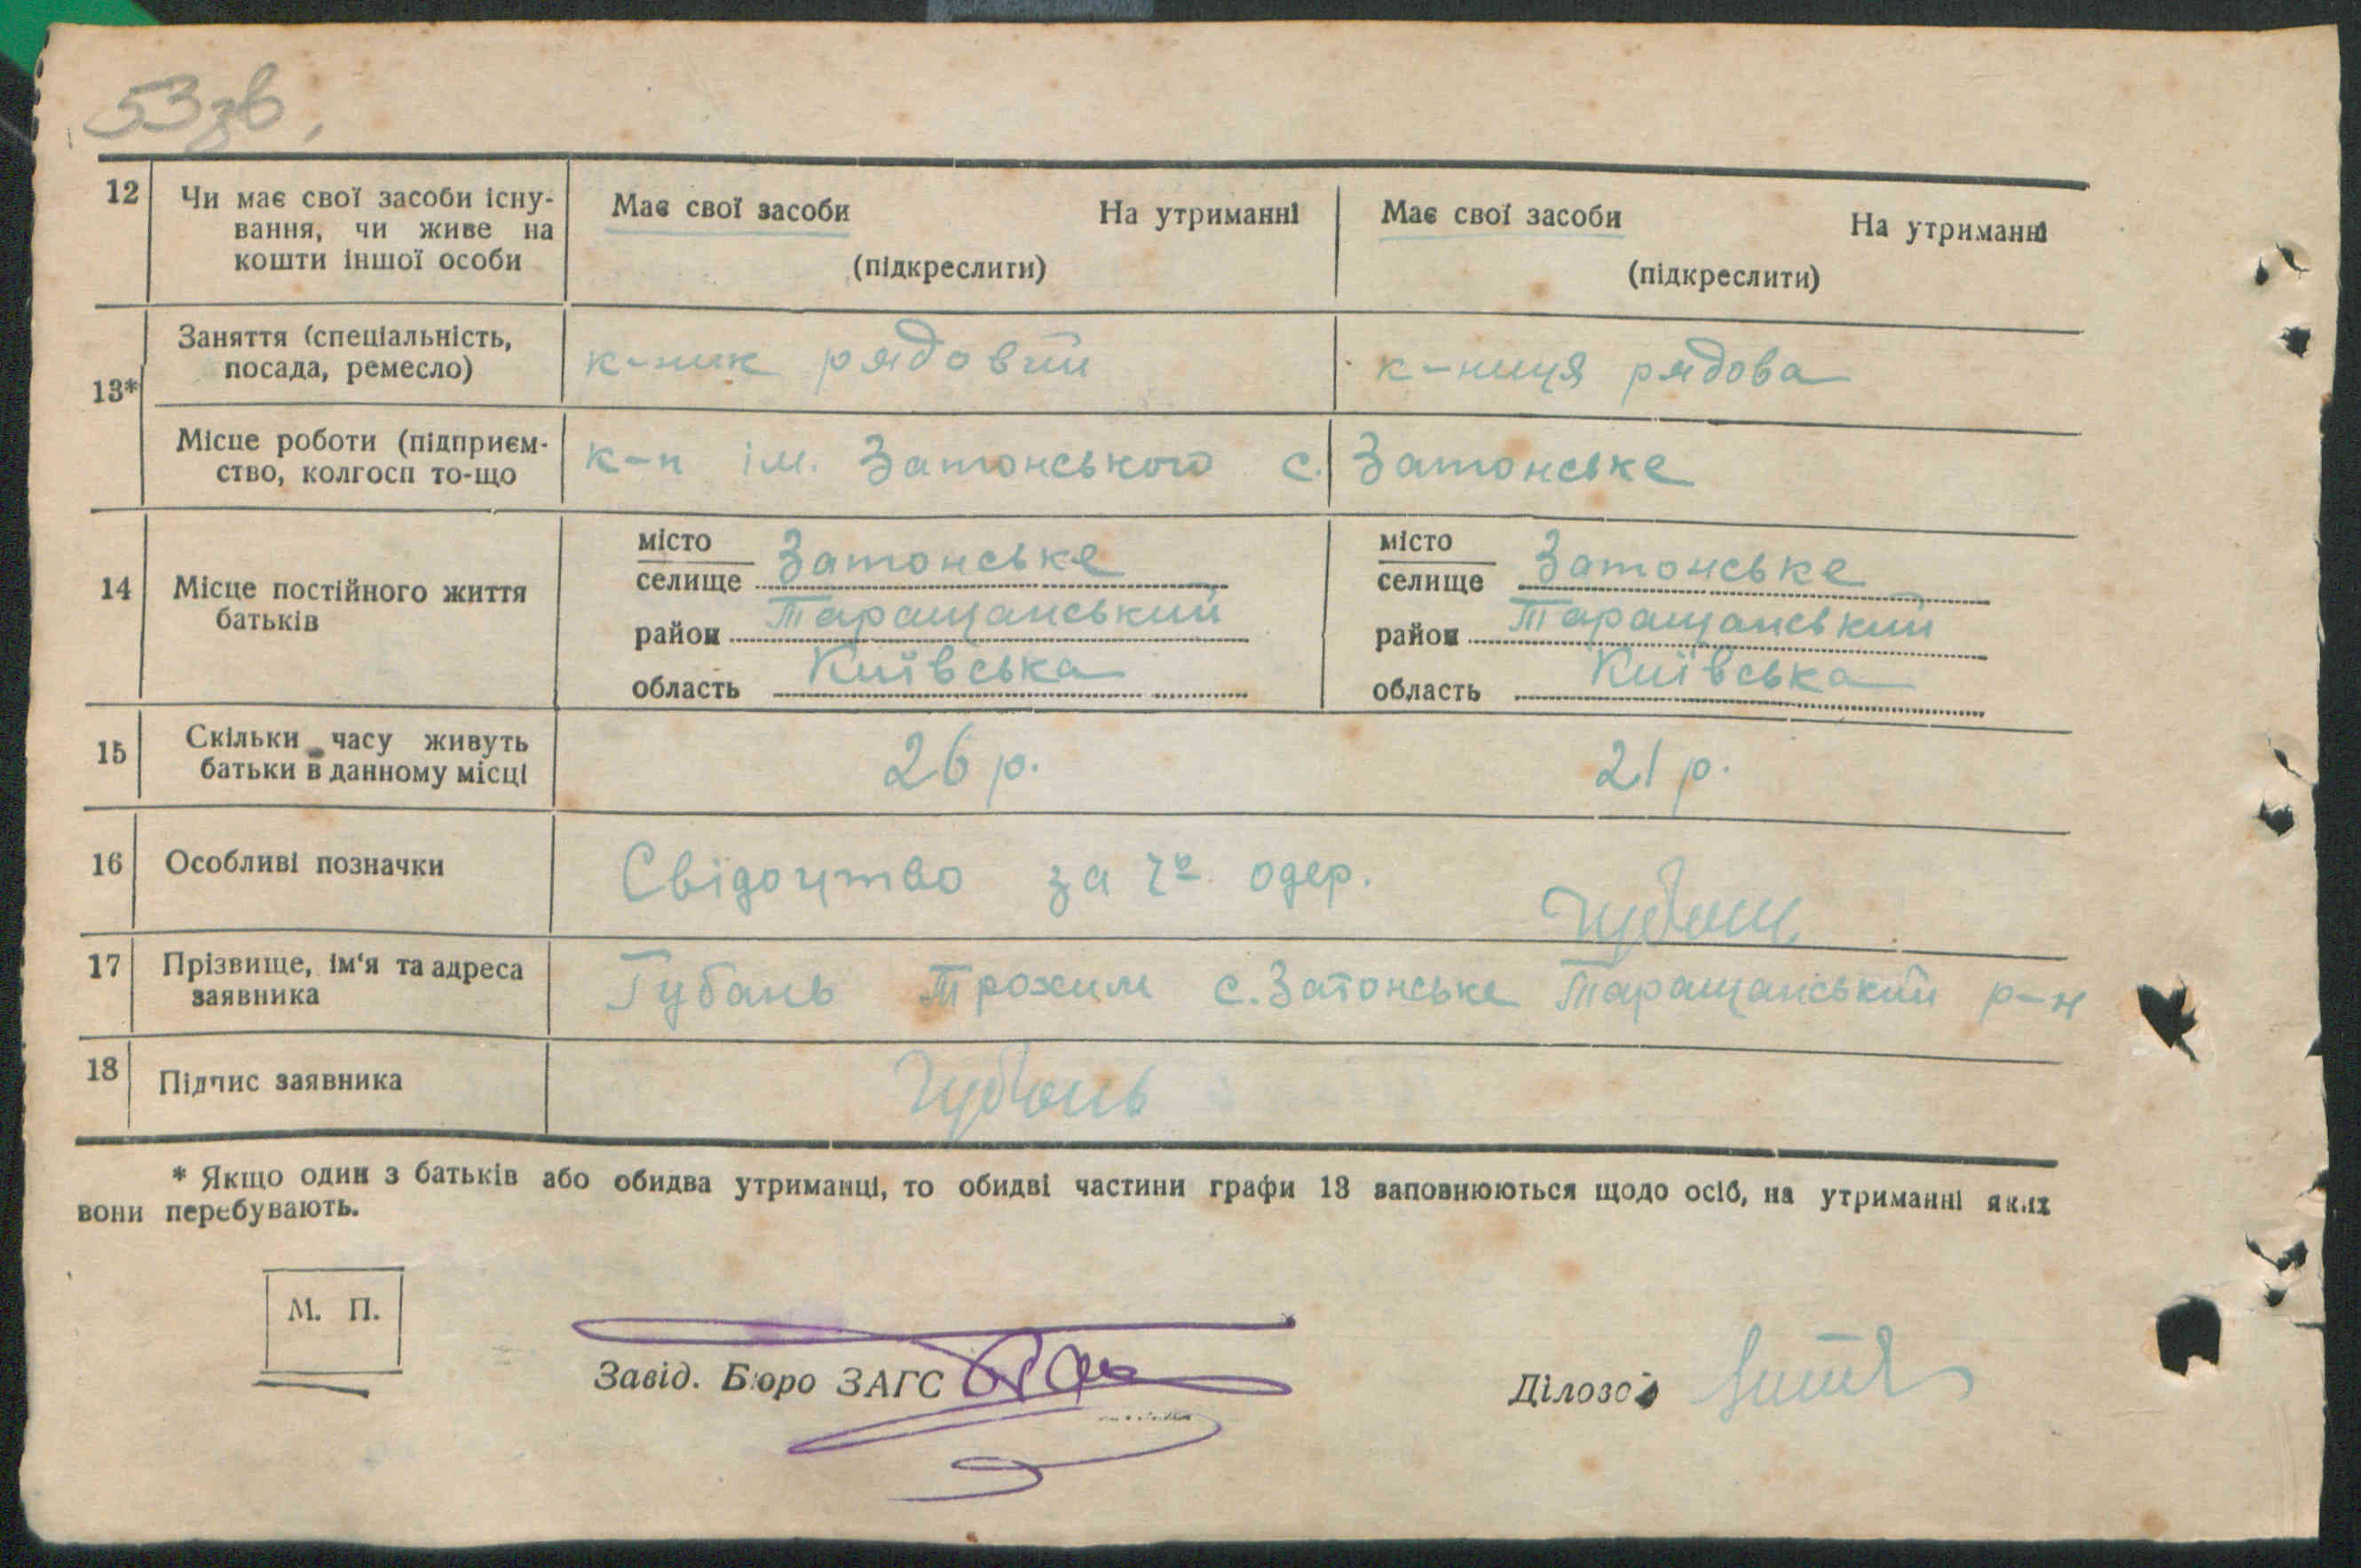 53зв.
12 Чи має свої засоби існу-
вання, чи живе на
кошти іншої особи
Має свої засоби На утриманні
(підкреслити)
Має свої засоби На утриманні
(підкреслити)
13*
Заняття (спеціальність,
посада, ремесло)
к-ник рядовий
к-ниця рядова
Місце роботи (підприєм-
ство, колгосп то-що
к-п ім. Затонського с. Затонське
14 Місце постійного життя
батьків
місто
селище Затонське
район Таращанський
область Київська
місто
селище Затонське
район Таращанський
область Київська
15 Скільки часу живуть
батьки в данному місці
26 р.
21 р.
16 Особливі позначки
Свідоцтво за одер.
17 Прізвище, ім'я та адреса
заявника
Губань Трохим с. Затонське Таращанський р-н
18 Підпис заявника
Губань
* Якщо один з батьків або обидва утриманці, то обидві частини графи 13 заповнюються щодо осіб, на утриманні яких
вони перебувають.
М. П.
Завід. Бюро ЗАГС
Діловод